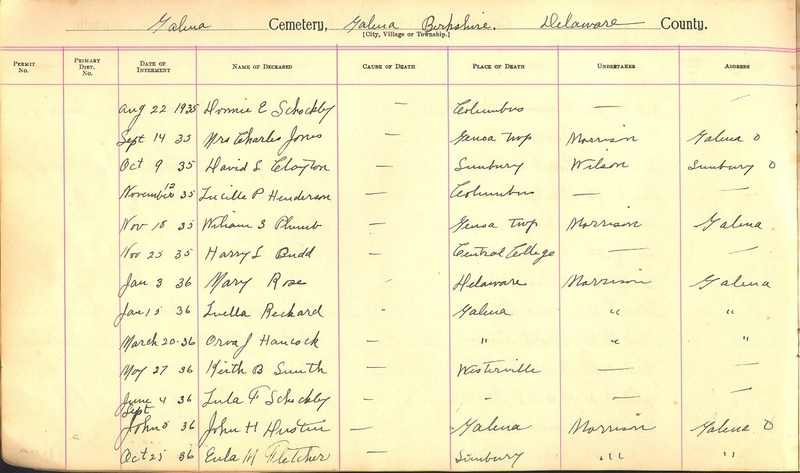 Galena Cemetery, Galena Berkshire. Delaware County.
[City, Village or Township.]
Permit No. Primary Dist. No. Date of Interment Name of Deceased Cause of Death Place of Death Undertaker Address
Aug 22 1935 Donnie E Schockley — Columbus — —
Sept 14 35 Mrs Charles Jones — Genoa Twp Morrison Galena O
Oct 9 35 David S Clayton — Sunbury Wilson Sunbury O
November 12 35 Lucille P Henderson — Columbus — —
Nov 18 35 William S Plumb — Genoa Twp Morrison Galena
Nov 25 35 Harry L Budd — Central College — —
Jan 3 36 Mary Rose Delaware Morrison Galena
Jan 15 36 Luella Rickard Galena " "
March 20 · 36 Orva J Hancock — " " "
May 27 36 Keith B Smith — Westerville — —
June 4 36 Lula F Schockley — " — —
Sept 5 36 John H Dustin — Galena Morrison Galena O
Oct 25 36 Eula M Fletcher — Sunbury " "